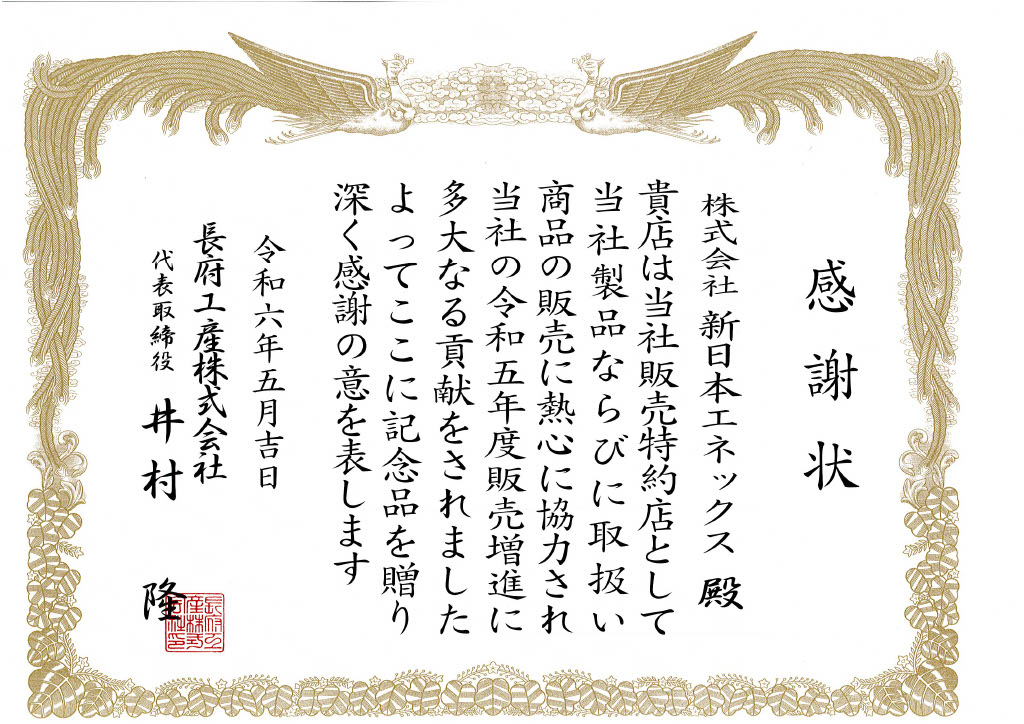 感謝状
株式会社 新日本エネックス 殿
貴店は当社販売特約店として
当社製品ならびに取扱い
商品の販売に熱心に協力され
当社の令和五年度販売増進に
多大なる貢献をされました
よってここに記念品を贈り
深く感謝の意を表します
令和六年五月吉日
長府工産株式会社
代表取締役 井村 隆
長府工
産株式
会社印